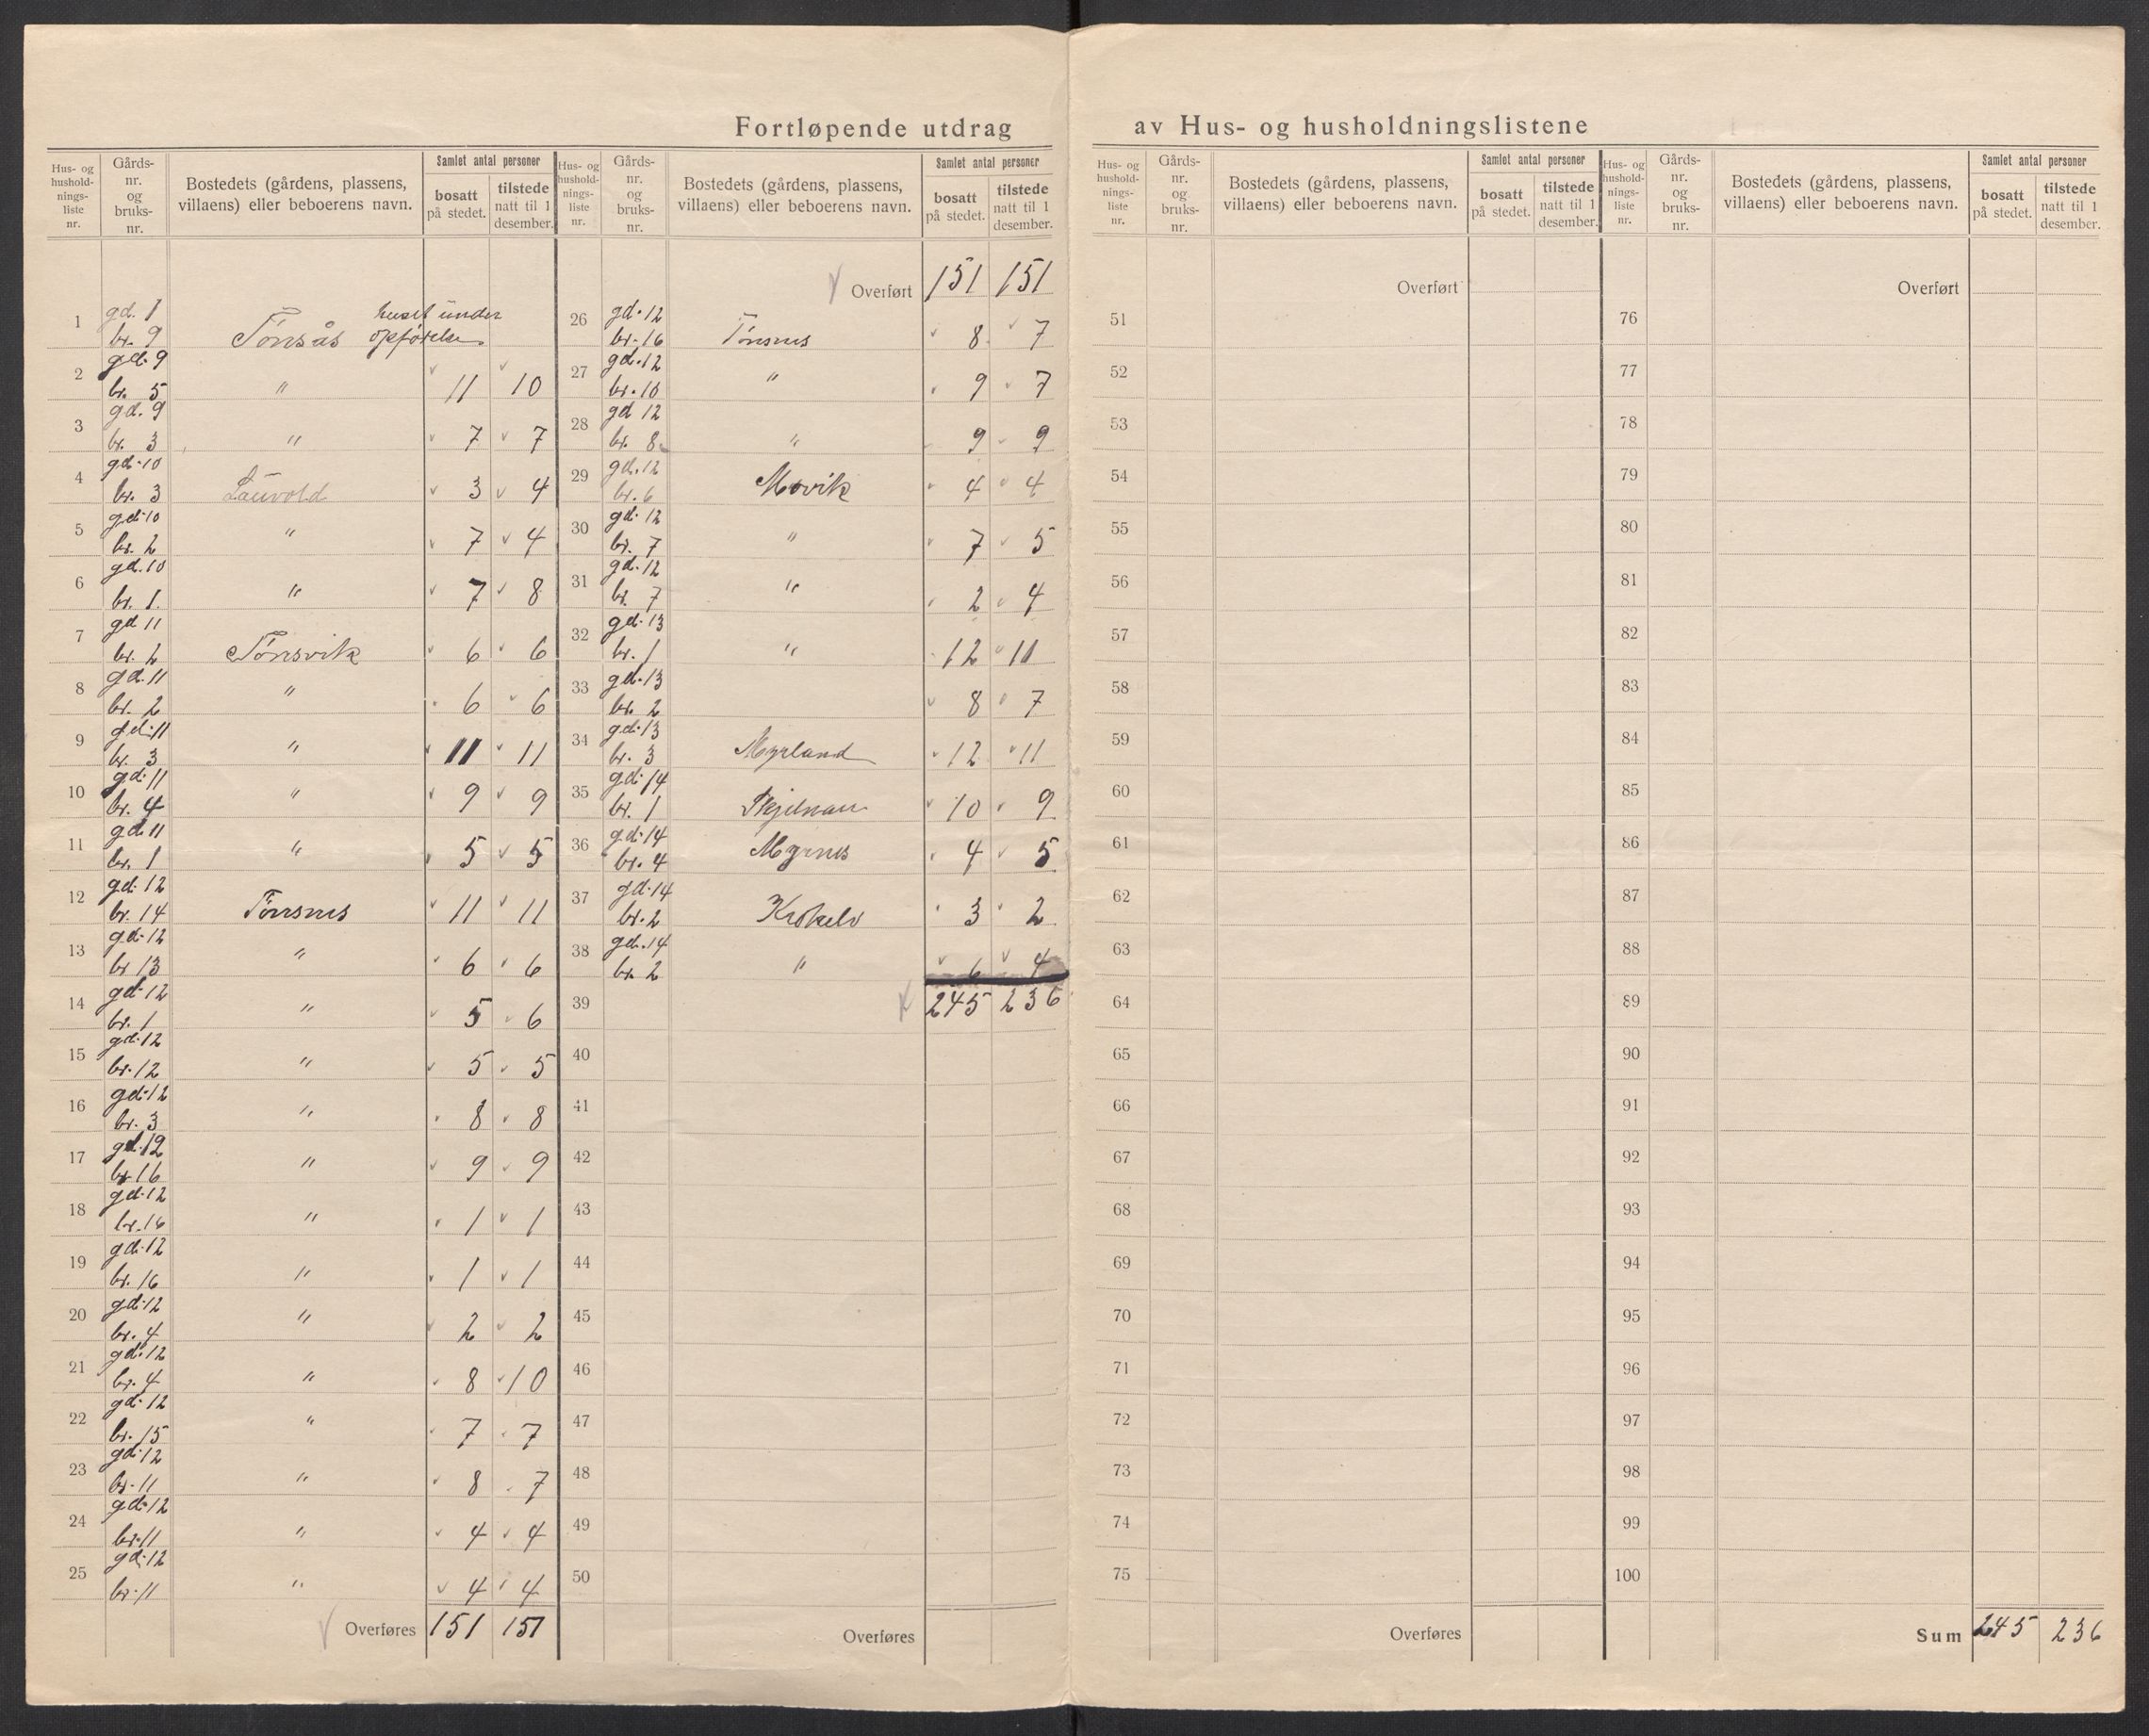 Fortløpende utdrag av Hus- og husholdningslistene
Hus- og hushold- nings- liste nr. Gårds- nr. og bruks- nr. Bostedets (gårdens, plassens, villaens) eller beboerens navn. Samlet antal personer bosatt på stedet. tilstede natt til 1 desember.
1 gd. 1 br. 9 Tønsås huset under opførelse
2 gd. 9 br. 5 " 11 10
3 gd. 9 br. 3 " 7 7
4 gd. 10 br. 3 Lauvold 3 4
5 gd. 10 br. 2 " 7 4
6 gd. 10 br. 1. " 7 8
7 gd 11 br. 2 Tønsvik 6 6
8 gd. 11 br. 2 " 6 6
9 gd. 11 br. 3 " 11 11
10 gd. 11 br. 4 " 9 9
11 gd 11 br. 1 " 5 5
12 gd. 12 br. 14 Tønsnes 11 11
13 gd. 12 br 13 " 6 6
14 gd. 12 br. 1 " 5 6
15 gd. 12 br. 12 " 5 5
16 gd. 12 br. 3 " 8 8
17 gd. 12 br 16 " 9 9
18 gd. 12 br. 16 " 1 1
19 gd. 12 br. 16 " 1 1
20 gd. 12 br. 4 " 2 2
21 gd. 12 br. 4 " 8 10
22 gd. 12 br. 15 " 7 7
23 gd. 12 br. 11 " 8 7
24 gd. 12 br. 11 " 4 4
25 gd. 12 br. 11 " 4 4
Overføres 151 151
Hus- og hushold- nings- liste nr. Gårds- nr. og bruks- nr. Bostedets (gårdens, plassens, villaens) eller beboerens navn. Samlet antal personer bosatt på stedet. tilstede natt til 1 desember.
Overført 151 151
26 gd. 12 br. 16 Tønsnes 8 7
27 gd. 12 br. 10 " 9 7
28 gd 12 br. 8 " 9 9
29 gd. 12 br. 6 Movik 4 4
30 gd. 12 br. 7 " 7 5
31 gd. 12 br. 7 " 2 4
32 gd. 13 br. 1 " 12 11
33 gd. 13 br. 2 8 7
34 gd. 13 br. 3 Myrland 12 11
35 gd. 14 br. 1 Skjelnan 10 9
36 gd. 14 br. 4 Myrnes 4 5
37 gd. 14 br. 2 Krokelv 3 2
38 gd. 14 br. 2 " 6 4
39 245 236
40
41
42
43
44
45
46
47
48
49
50
Overføres
Hus- og hushold- nings- liste nr. Gårds- nr. og bruks- nr. Bostedets (gårdens, plassens, villaens) eller beboerens navn. Samlet antal personer bosatt på stedet. tilstede natt til 1 desember.
Overført
51
52
53
54
55
56
57
58
59
60
61
62
63
64
65
66
67
68
69
70
71
72
73
74
75
Overføres
Hus- og hushold- nings- liste nr. Gårds- nr. og bruks- nr. Bostedets (gårdens, plassens, villaens) eller beboerens navn. Samlet antal personer bosatt på stedet. tilstede natt til 1 desember.
Overført
76
77
78
79
80
81
82
83
84
85
86
87
88
89
90
91
92
93
94
95
96
97
98
99
100
Sum 245 236